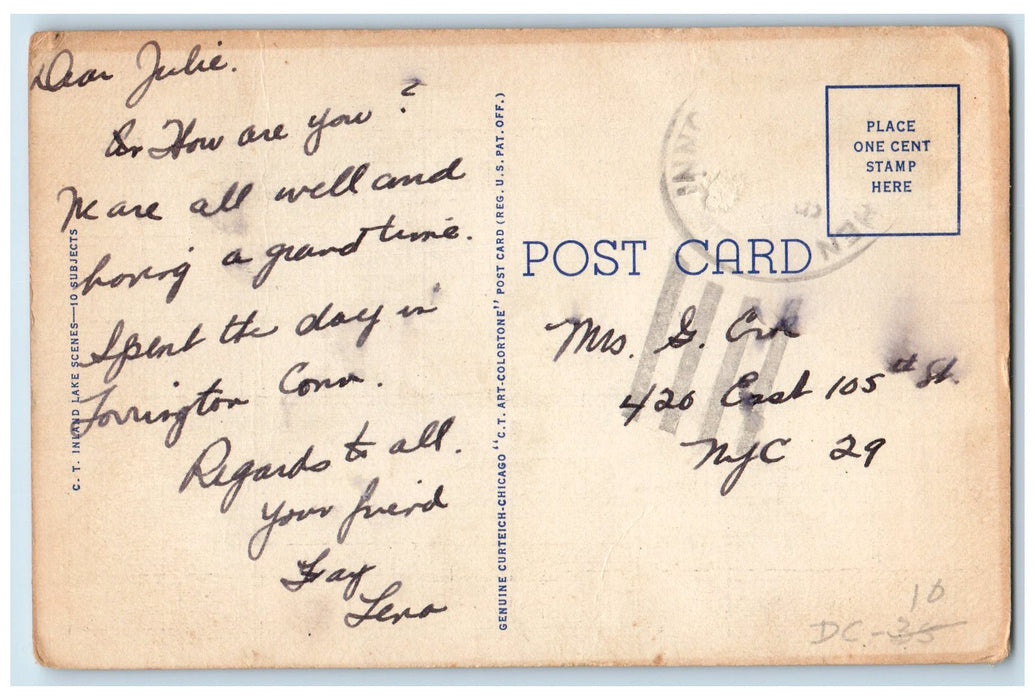 Dear Julie.
How are you?
We are all well and
having a grand time.
Spent the day in
Torrington Conn.
Regards to all.
Your friend
Fay
Lena
C. T. INLAND LAKE SCENES—10 SUBJECTS
GENUINE CURTEICH-CHICAGO "C.T. ART-COLORTONE" POST CARD (REG. U.S. PAT. OFF.)
POST CARD
PLACE
ONE CENT
STAMP
HERE
Mrs. G.
420 East 105th St.
NYC 29
10
DC-35